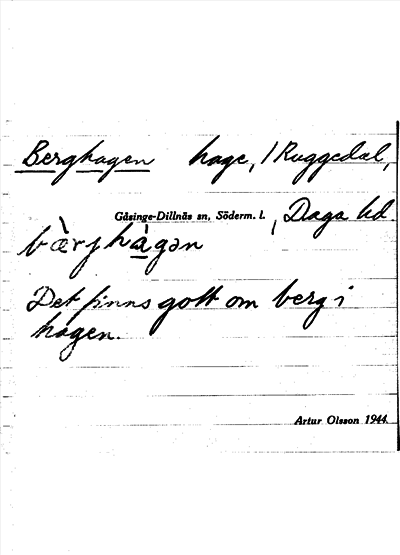 Berghagen hage, / Ruggedal,
Gåsinge-Dillnäs sn, Söderm. l. , Daga hd.
bæ̀rjhà̱gən
Det finns gott om berg i
hagen.
Artur Olsson 1944.